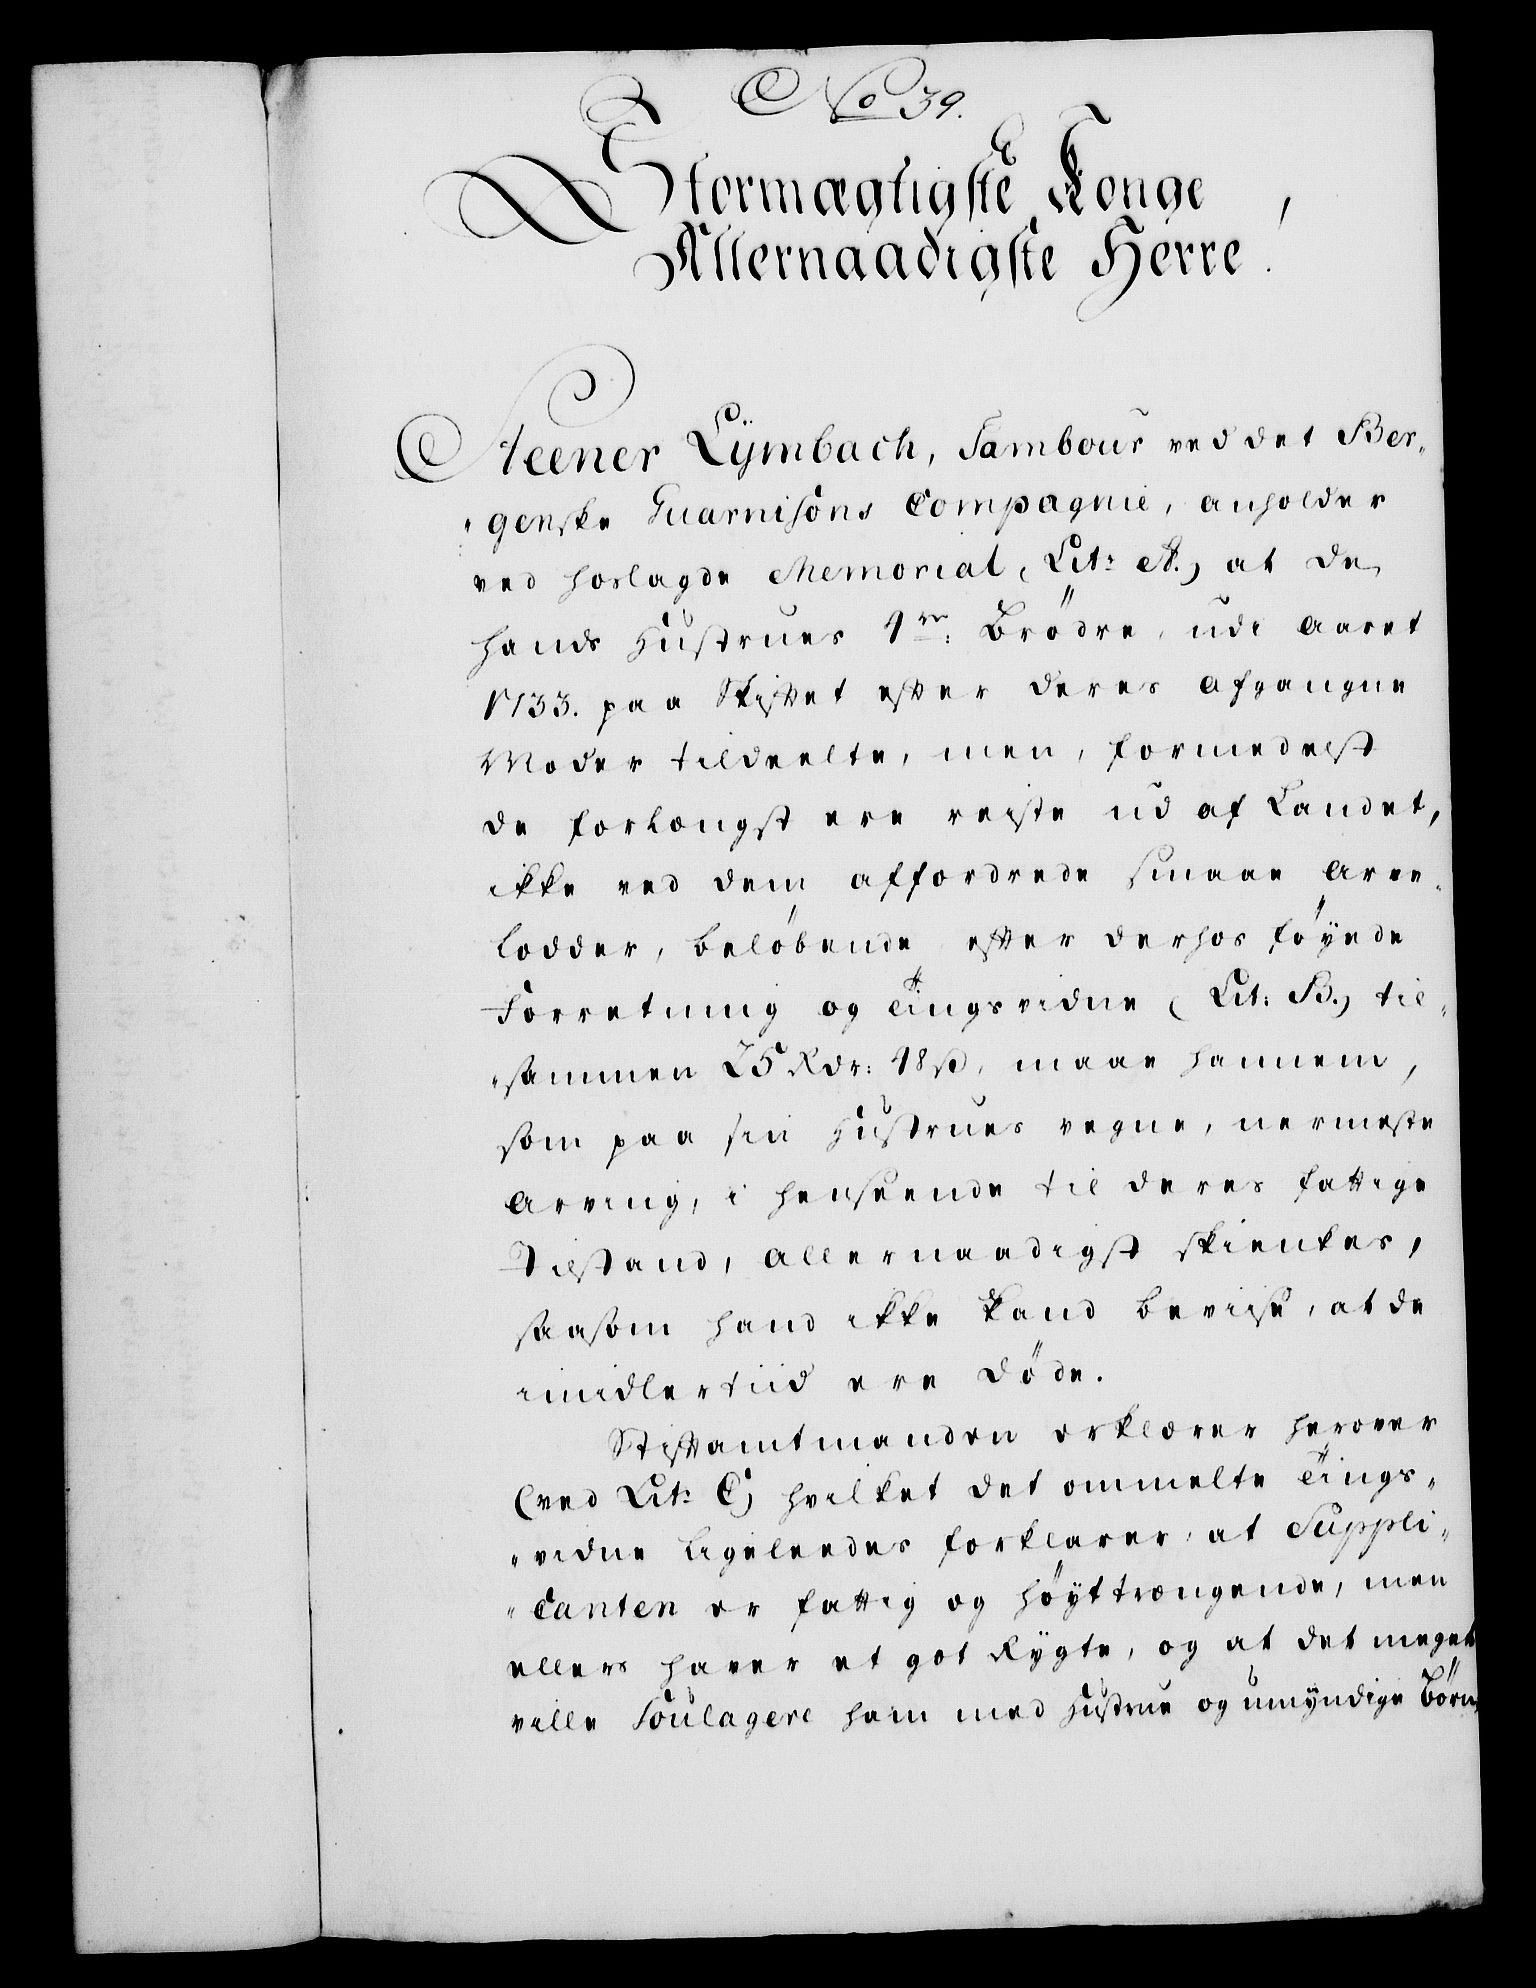 No 39.
Stormægtigste Konge,
Allernaadigste Herre!
Steener Lÿmbach, Tambour ved det Ber„
„genske Guarnisons Compagnie, anholder
ved hoslagde Memorial, (Lit: A.) at de
hands Hustrues 4re: Brödre, udi Aaret
1733. paa Skiftet efter deres afgangne
Moder tildeelte, men, formedelst
de forlængst ere reiste ud af Landet,
ikke ved dem affordrede smaae Arve„
Lodder, beløbende efter derhos föyede
Forretning og Tingsvidne (Lit: B.) til„
„sammen 25 Rdr: 48 s, maae hannem,
som paa sin Hustrues vegne, nermeste
Arving, i henseende til deres fattige
Tilstand, allernaadigst skienkes,
saasom hand ikke kand beviise, at de
imidlertiid ere döde.
Stiftamtmanden erklærer herover
(ved Lit: C) hvilket det ommelte Tings„
„vidne ligeleedes forklarer, at Suppli„
„canten er fattig og höyttrængende, men
ellers haver et got Rÿgte, og at det meget
ville Soulagere ham med Hustrue og umÿndige Börn,